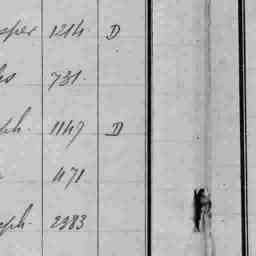 sper 1214 D
731
ph. 1147 D
471
eph. 2383